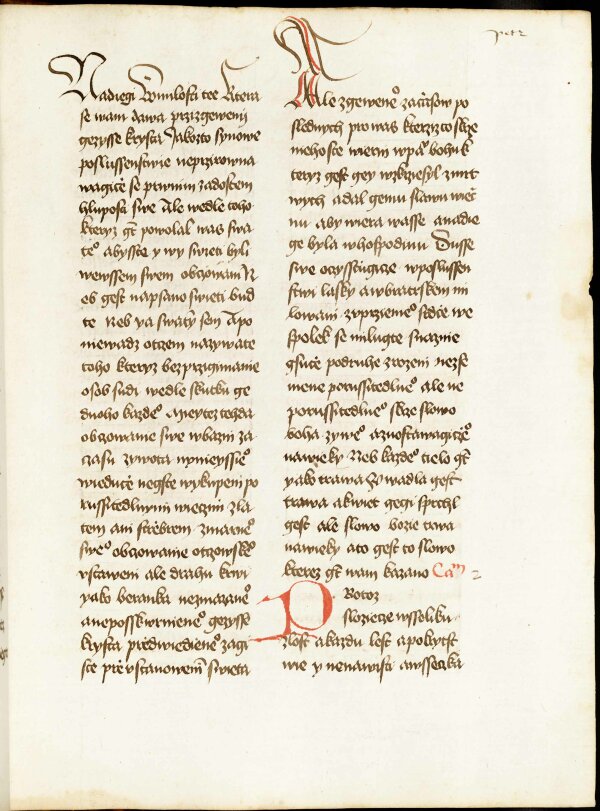 petr
Nadiegi Wmilosti tee ktera
se wam dawa przizgewenij
gezysse krysta Jakozto synowe
poslussenstwie neprzirowna
wagicze se prwnim zadostem
hluposti swe Ale wedle toho
kteryz gt powolal was swa
te° abysste y wy swieti byli
wewssem swem obczowani N
eb gest napsano swieti bud
te Neb ya swaty sem Apo
niewadz otczem nazywate
toho kteryz bez przigimanie
osob sudi wedle skutku ge
dnoho kazde° Apeytez tehda
obczowanie swe wbazni za
czasu zywota nynieyssie°
wieducze negste wykupeni po
russitedlnymi wieczmi zla
tem ani strziebrem zmarne°
swe° obczowanie otczowske°
vstaweni ale drahu krwi
yako beranka nezmazane°
aneposskwrniene° gezysse
krysta przedwiediene° zagi
ste przed vstanowenim swieta
Ale zgewene° zaczasow po
slednych pro was kterzizto skrze
nieho ste wierni wpa° bohu k
teryz gest gey wzkrziesyl zmrt
wych adal gemu slawu wiecz
nu aby wiera wasse anadie
ge byla whospodinu Dusse
swe oczysstiugicze wposlussen
stwi lasky awbratrskem mi
lowani zuprzieme° srdcze we
spolek se milugte snaznie
gsucze podruhe zrozeni nezse
mene porussitedlne° ale ne
porussitedlne° skrze slowo
boha zywe° azuostawagicze°
nawieky Neb kazde° tielo gt
yako trawa Zwadla gest
trawa akwiet gegi sprchl
gest ale slowo bozie trwa
nawieky ato gest to slowo
kterez gt wam kazano Cam 2
Protoz
slozecze wssoliku
zlost akazdu lest apokryst
wie y nenawisti awsseczka